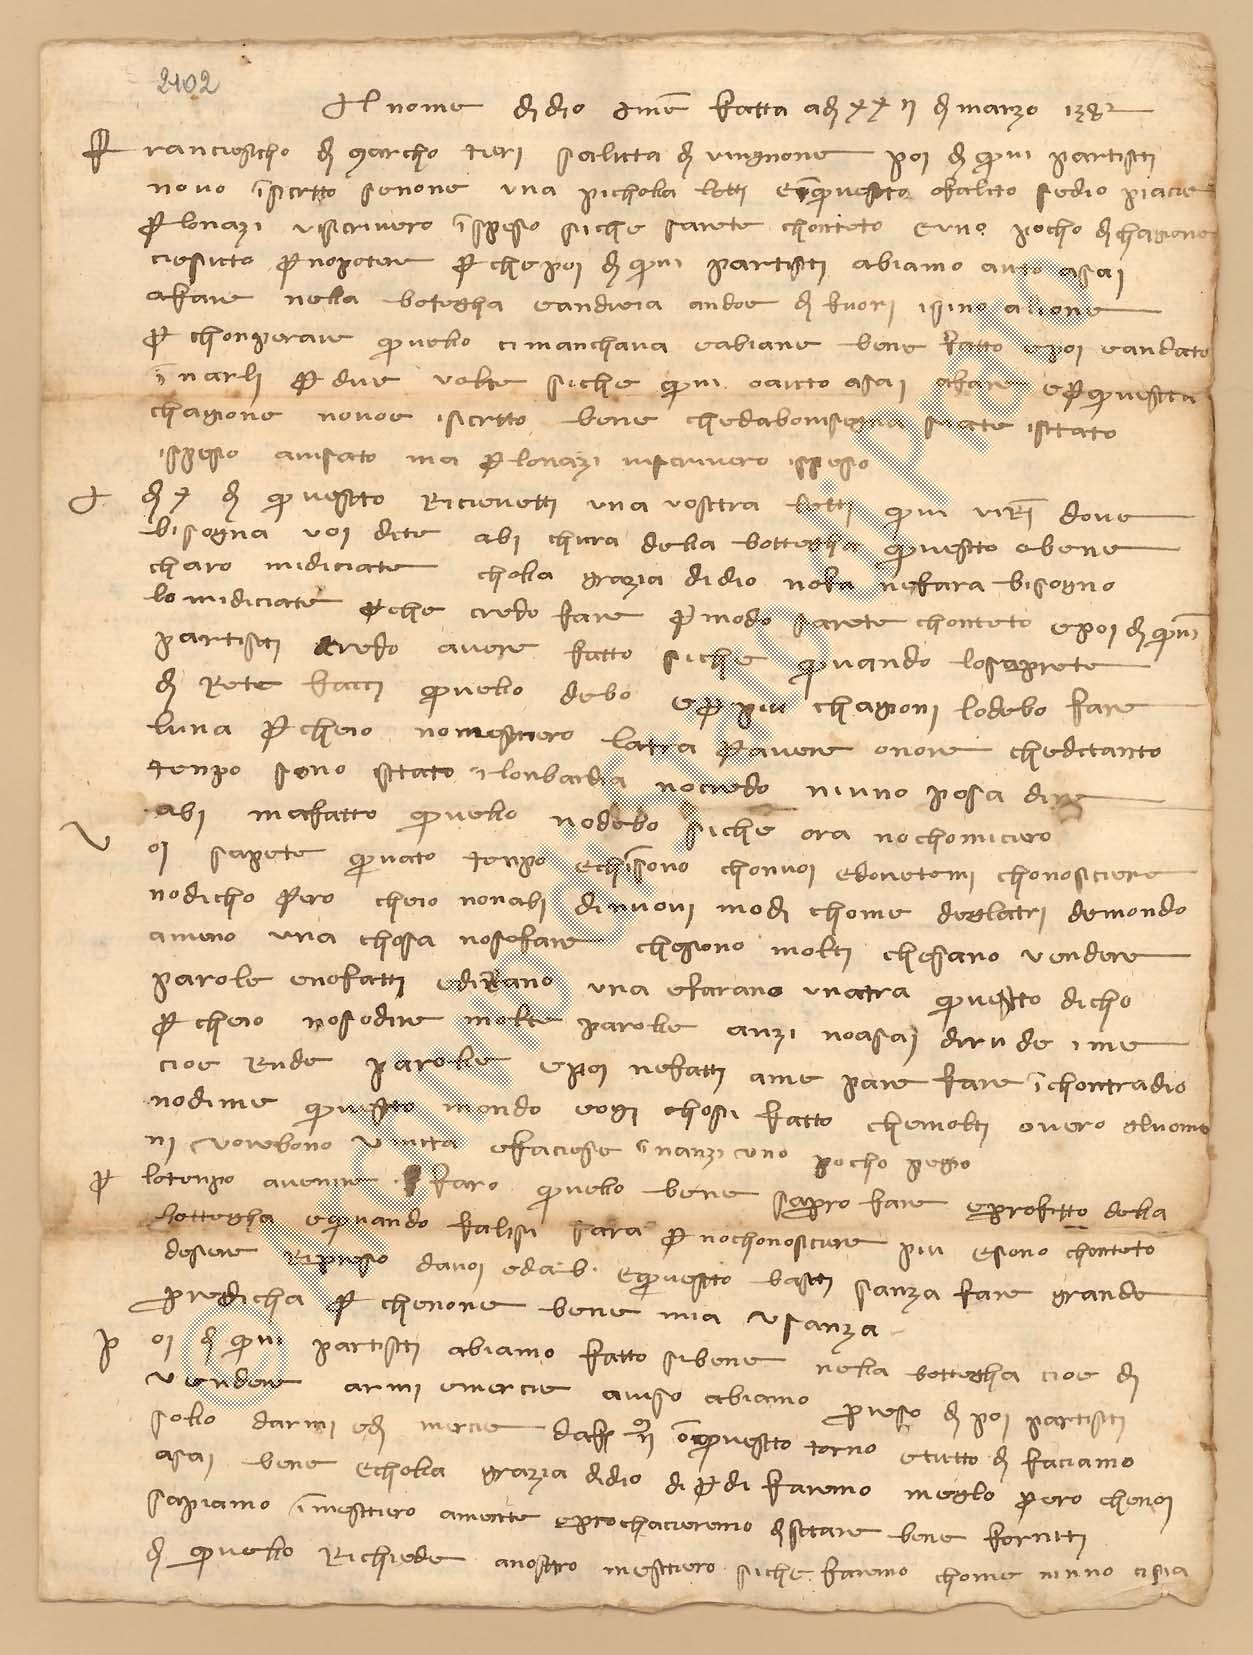 2102
Il nome di dio ame fatta a di XXII di marzo 1382
Franciescho di Marcho Tieri saluta di Vingnone poi di qui partisti
nono iscrtto senone una pichola lett e quessta falito sedio piacie
p lonazi viscrivero ispeso siche sarete chonteto e uno pocho di chagione
nesuto p nopotere p che poi di qui partisti abiamo auto asai
afare nella botegha e andreia andoe di fuori isino alione
p chonperare quello ci manchava e abiane bene fatto e poi e andato
inarli p due volte siche qui oauto asai afare e p quessta
chagione nonoe iscrtto bene che da bonisegna siate isttato
ispeso avisato ma p lonazi viscrivero ispeso
di X di questto Ricievetti una vosttra lett qui vi Ri dove
bisogna voi dite abi chura della bottegha questto e bene
charo midiciate cholla grazia di dio nofa nefara bisogno
lo midiciate p che credo fare p modo sarete chonteto e poi di qui
partisti credo avere fatto siche quando lo saprete
di Rete facci quello debo e p piu chagioni lo debo fare
luna p cheio nomesttiero latra p avere onore che ditanto
tenpo sono isttato i lonbardia nocredo niuno posa dire
abi mafatto quello nodebo siche ora nochomiciero
Voi sapete quato tenpo e chisono chonvoi e dovetemi chonosciere
nodicho pero cheio nonabi di nuovi modi chome deglatri demondo
ameno una chosa nosofare che sono molti che sano vendere
parole e nofatti e dirano una e farano unatra questto dicho
p cheio nosodire molte parole anzi noasai di Rude ime
cioe Rude parolle e poi nefatti ame pare fare i chontradio
nodime questto mondo e ogi chosi fatto che molti overo gluomi
ni vorebono vi e faciese inanzi uno pocho pegio
p lotenpo avenire faro quello bene sapro fare e profitto della
bottegha e quando falisi sara p nochonosciere piu e sono chonteto
desere Ripreso da voi e da b. e questto basti sanza fare grande
predicha p che none bene mia usanza
poi di qui partisti abiamo fatto si bene nella bottegha cioe di
vendere armi e mercie aviso abiamo preso di poi partisti
sollo darmi e di mercie da f i questto torno e tutto di faciamo
asai bene e cholla grazia di dio di p di faremo meglo pero che noi
sapiamo i mesttiero amente e prochacieremo di sttare bene forniti
di quello Richiede anosttro mesttiero siche faremo chome niuno ci sia